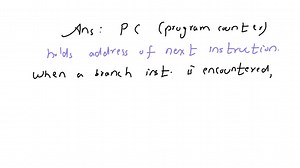 Ans: PC (program counter)
holds address of next instruction.
when a branch inst. is encountered,